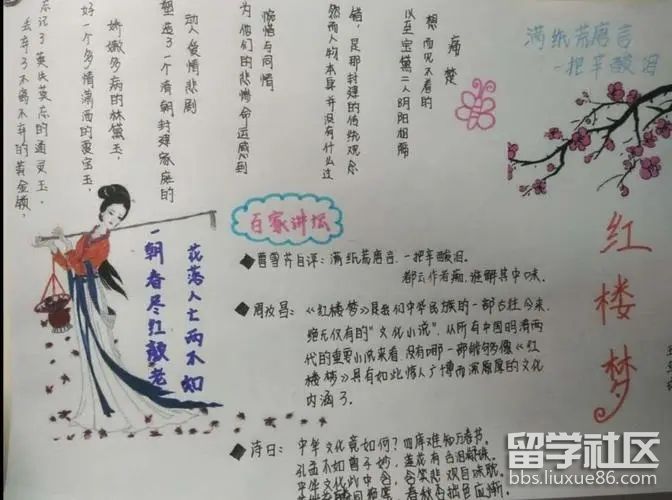 满纸荒唐言
一把辛酸泪
红楼梦
痛楚
想而见不着的
以至宝黛二人阴阳相隔
错，是那封建的传统观念
然而人物本身并没有什么过
惋惜与同情
为他们的悲惨命运感到
动人爱情悲剧
塑造了一个清朝封建家庭的
娇嫩多病的林黛玉，
好一个多情潇洒的贾宝玉，
忘记了莫失莫忘的通灵玉，
丢弃了不离不弃的黄金锁，
一朝春尽红颜老
花落人亡两不知
百家讲坛
◆曹雪芹自评：满纸荒唐言，一把辛酸泪。
都云作者痴，谁解其中味。
◆周汝昌：《红楼梦》是我们中华民族的一部古往今来、
绝无仅有的“文化小说”。从所有中国明清两
代的重要小说来看，没有哪一部能够像《红
楼梦》具有如此惊人广博而深厚的文化
内涵了。
◆诗曰：中华文化竟如何？四库难知万春节。
孔孟不如曹子妙，莲花有舌泪凝珠。
留学社区
bbs.liuxue86.com